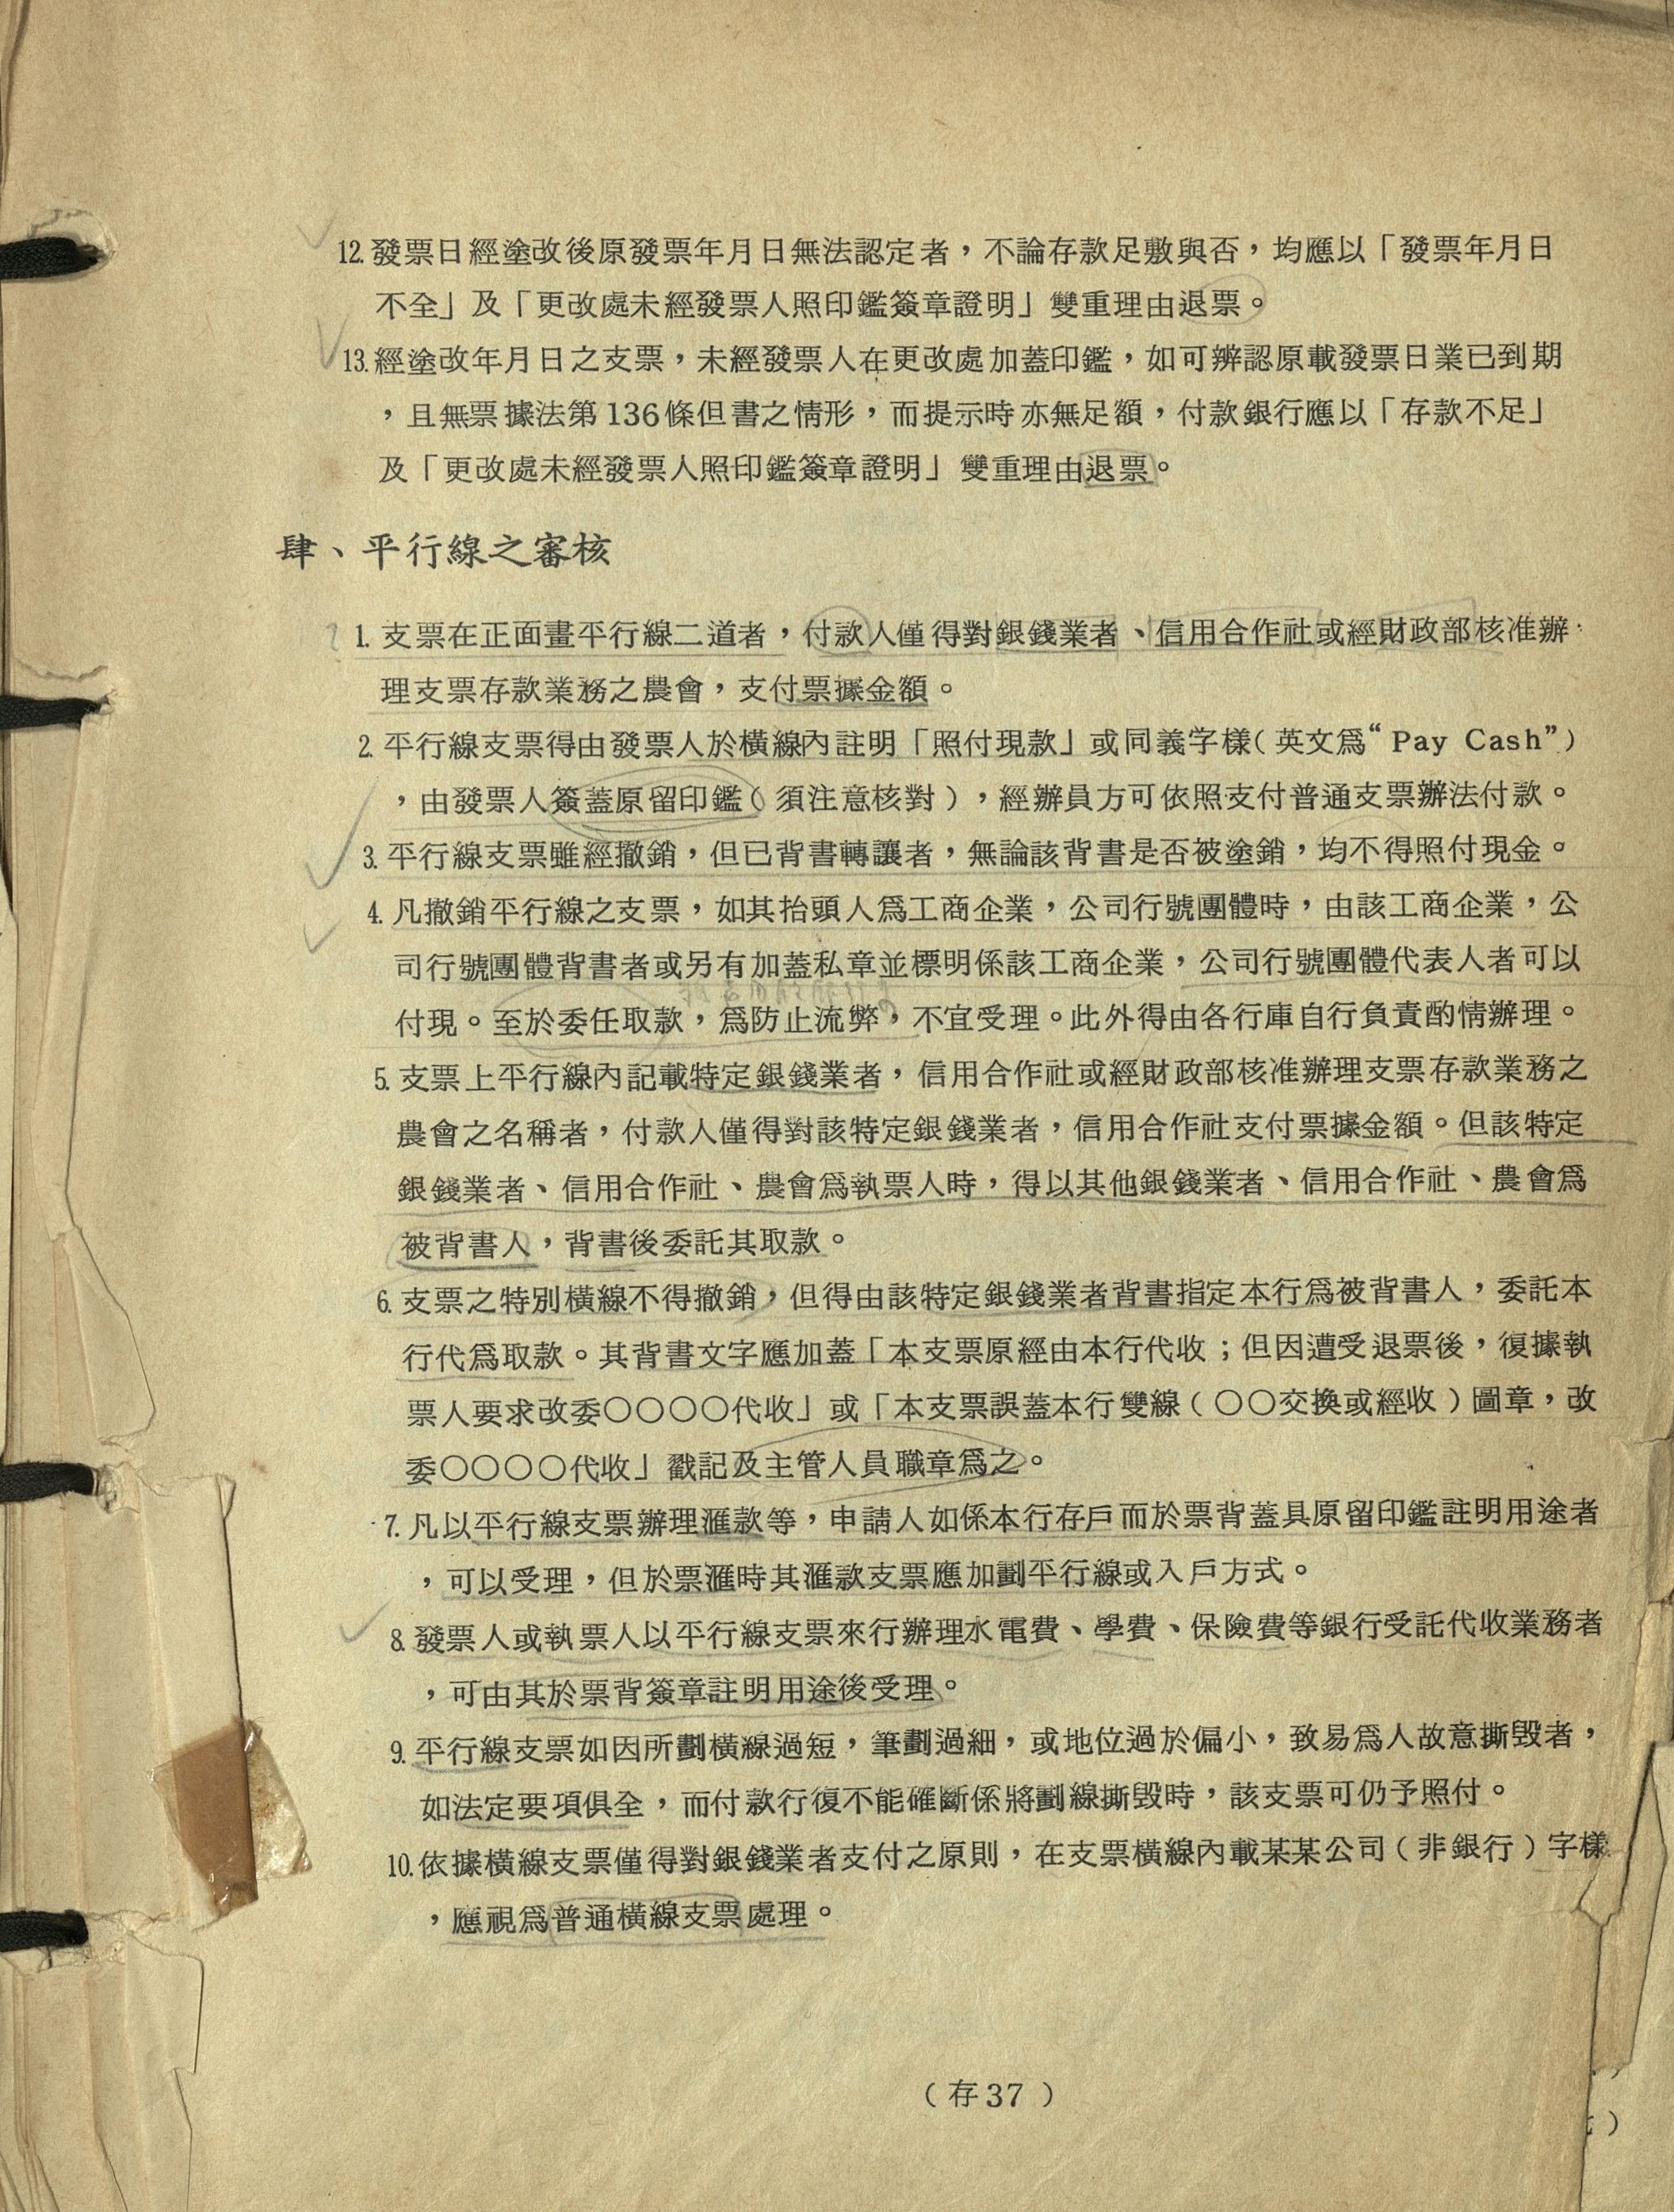 12.發票日經塗改後原發票年月日無法認定者，不論存款足敷與否，均應以「發票年月日
不全」及「更改處未經發票人照印鑑簽章證明」雙重理由退票。
13.經塗改年月日之支票，未經發票人在更改處加蓋印鑑，如可辨認原載發票日業已到期
，且無票據法第136條但書之情形，而提示時亦無足額，付款銀行應以「存款不足」
及「更改處未經發票人照印鑑簽章證明」雙重理由退票。
肆、平行線之審核
1.支票在正面畫平行線二道者，付款人僅得對銀錢業者、信用合作社或經財政部核准辦
理支票存款業務之農會，支付票據金額。
2.平行線支票得由發票人於橫線內註明「照付現款」或同義字樣（英文爲“Pay Cash”）
，由發票人簽蓋原留印鑑（須注意核對），經辦員方可依照支付普通支票辦法付款。
3.平行線支票雖經撤銷，但已背書轉讓者，無論該背書是否被塗銷，均不得照付現金。
4.凡撤銷平行線之支票，如其抬頭人爲工商企業，公司行號團體時，由該工商企業，公
司行號團體背書者或另有加蓋私章並標明係該工商企業，公司行號團體代表人者可以
付現。至於委任取款，爲防止流弊，不宜受理。此外得由各行庫自行負責酌情辦理。
5.支票上平行線內記載特定銀錢業者，信用合作社或經財政部核准辦理支票存款業務之
農會之名稱者，付款人僅得對該特定銀錢業者，信用合作社支付票據金額。但該特定
銀錢業者、信用合作社、農會爲執票人時，得以其他銀錢業者、信用合作社、農會爲
被背書人，背書後委託其取款。
6.支票之特別橫線不得撤銷，但得由該特定銀錢業者背書指定本行爲被背書人，委託本
行代爲取款。其背書文字應加蓋「本支票原經由本行代收；但因遭受退票後，復據執
票人要求改委〇〇〇〇代收」或「本支票誤蓋本行雙線（〇〇交換或經收）圖章，改
委〇〇〇〇代收」戳記及主管人員職章爲之。
7.凡以平行線支票辦理滙款等，申請人如係本行存戶而於票背蓋具原留印鑑註明用途者
，可以受理，但於票滙時其滙款支票應加劃平行線或入戶方式。
8.發票人或執票人以平行線支票來行辦理水電費、學費、保險費等銀行受託代收業務者
，可由其於票背簽章註明用途後受理。
9.平行線支票如因所劃橫線過短，筆劃過細，或地位過於偏小，致易爲人故意撕毀者，
如法定要項俱全，而付款行復不能確斷係將劃線撕毀時，該支票可仍予照付。
10.依據橫線支票僅得對銀錢業者支付之原則，在支票橫線內載某某公司（非銀行）字樣
，應視爲普通橫線支票處理。
（存37）